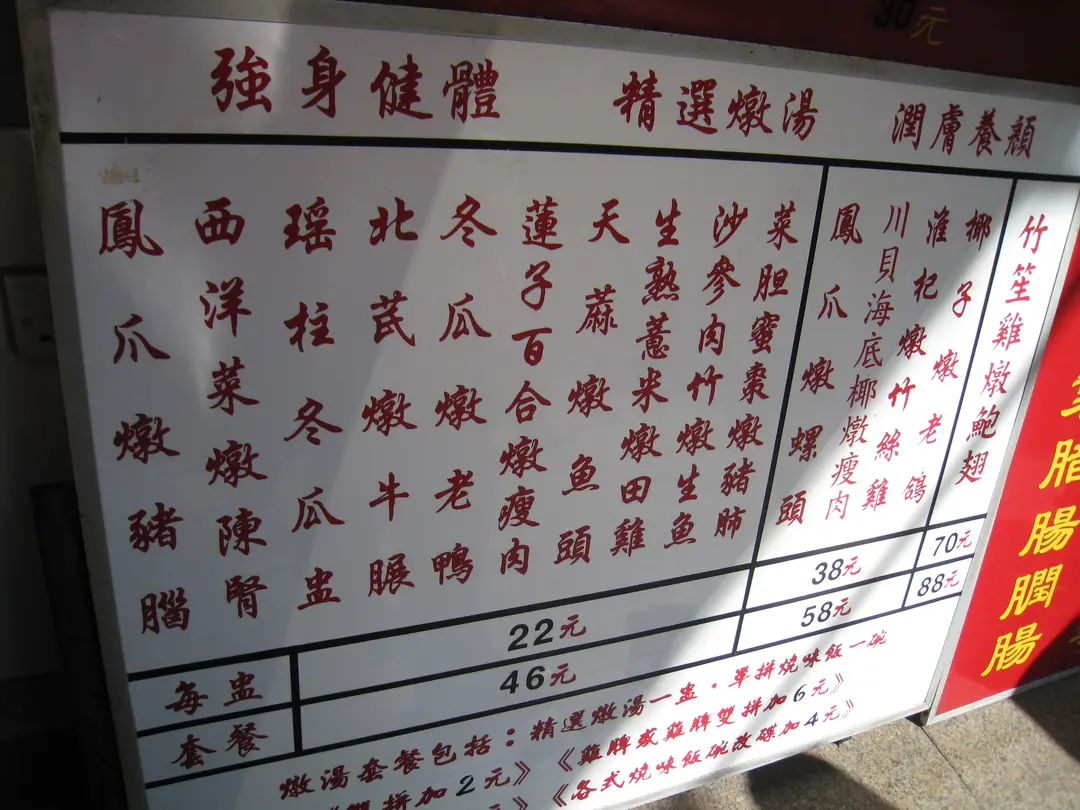 30元
強身健體 精選燉湯 潤膚養顏
鳳爪燉豬腦
西洋菜燉陳腎
瑶柱冬瓜盅
北芪燉牛𦟌
冬瓜燉老鴨
蓮子百合燉瘦肉
天蔴燉魚頭
生熟薏米燉田雞
沙參肉竹燉生魚
菜胆蜜棗燉豬肺
鳳爪燉螺頭
川貝海底椰燉瘦肉
淮杞燉竹絲雞
椰子燉老鴿
竹笙雞燉鮑翅
22元 38元 70元
每盅
46元 58元 88元
套餐
燉湯套餐包括：精選燉湯一盅·單拼燒味飯一碗
雙拼加2元》《雞髀或雞髀雙拼加6元》
元》《各式燒味飯碗改碟加4元》
腊
腸
膶
腸